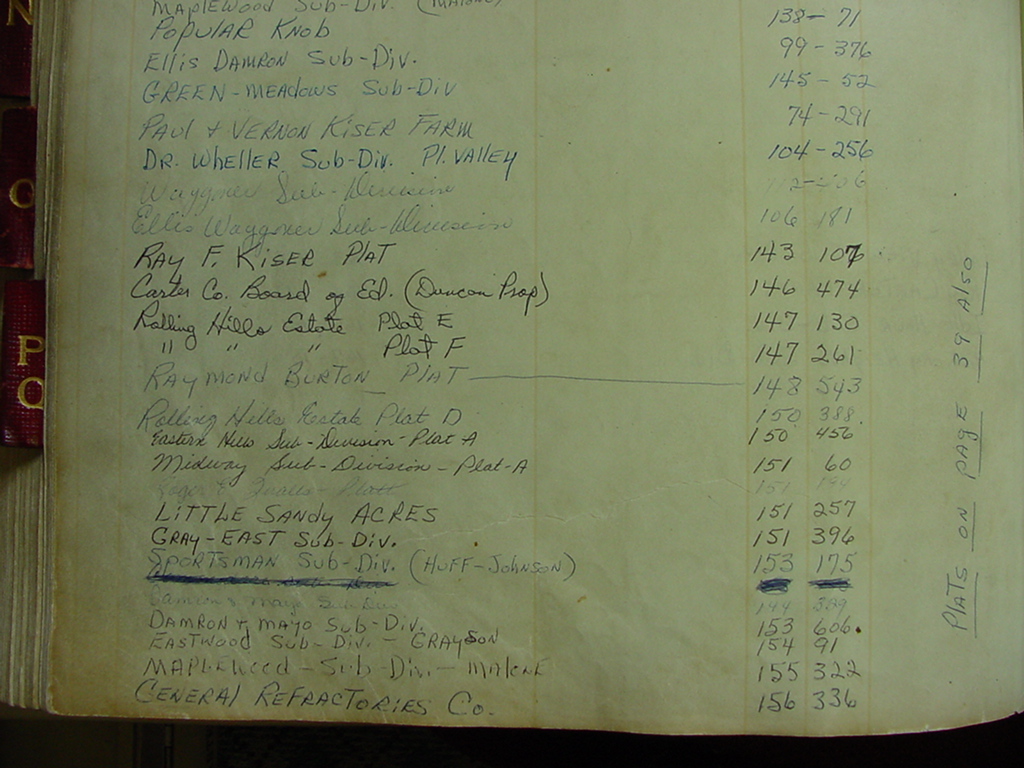 MAPLEWOOD SUB-DIV
POPULAR KNOB 138-71
Ellis DAMRON SUB-DIV. 99-376
GREEN-MEADOWS SUB-DIV 145-52
PAUL + VERNON KISER FARM 74-291
DR. WHELLER SUB-DIV. Pl. VALLEY 104-256
Waggner Sub-Division
Ellis Waggner Sub-Division 106 181
RAY F. KISER PLAT 143 107
Carter Co. Board of Ed. (Duncan Prop) 146 474
Rolling Hills Estate Plat E 147 130
" " " Plat F 147 261
RAYMOND BURTON PLAT 148 543
Rolling Hills Estate Plat D 150 388
Eastern Hills Sub-Division-Plat A 150 456
Midway Sub-Division-Plat-A 151 60
LITTLE SANDY ACRES 151 257
GRAY-EAST SUB-DIV. 151 396
SPORTSMAN SUB-DIV. (HUFF-JOHNSON) 153 175
DAMRON + MAYO SUB-DIV. 153 606
EASTWOOD SUB-DIV. - GRAYSON 154 91
MAPLEWOOD-SUB-DIV.-MALONE 155 322
GENERAL REFRACTORIES CO. 156 336
PLATS ON PAGE 39 Also
N
O
P
Q